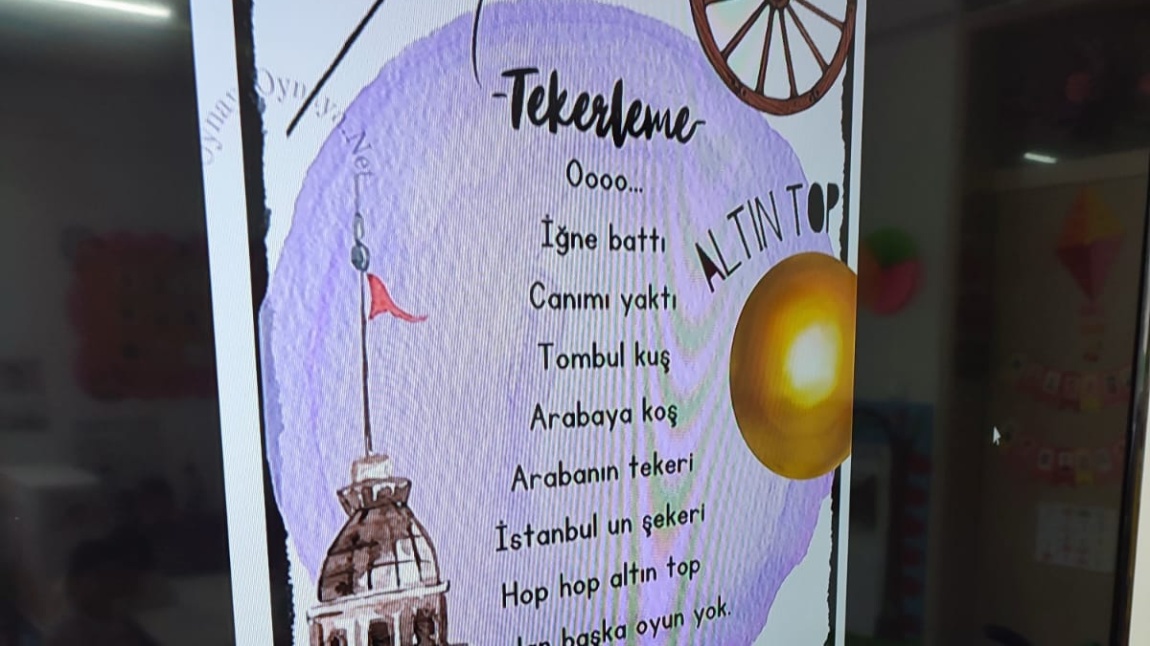 Oynaya Oynaya.Net
-Tekerleme-
Oooo...
İğne battı
Canımı yaktı
ALTIN TOP
Tombul kuş
Arabaya koş
Arabanın tekeri
İstanbul un şekeri
Hop hop altın top
başka oyun yok.